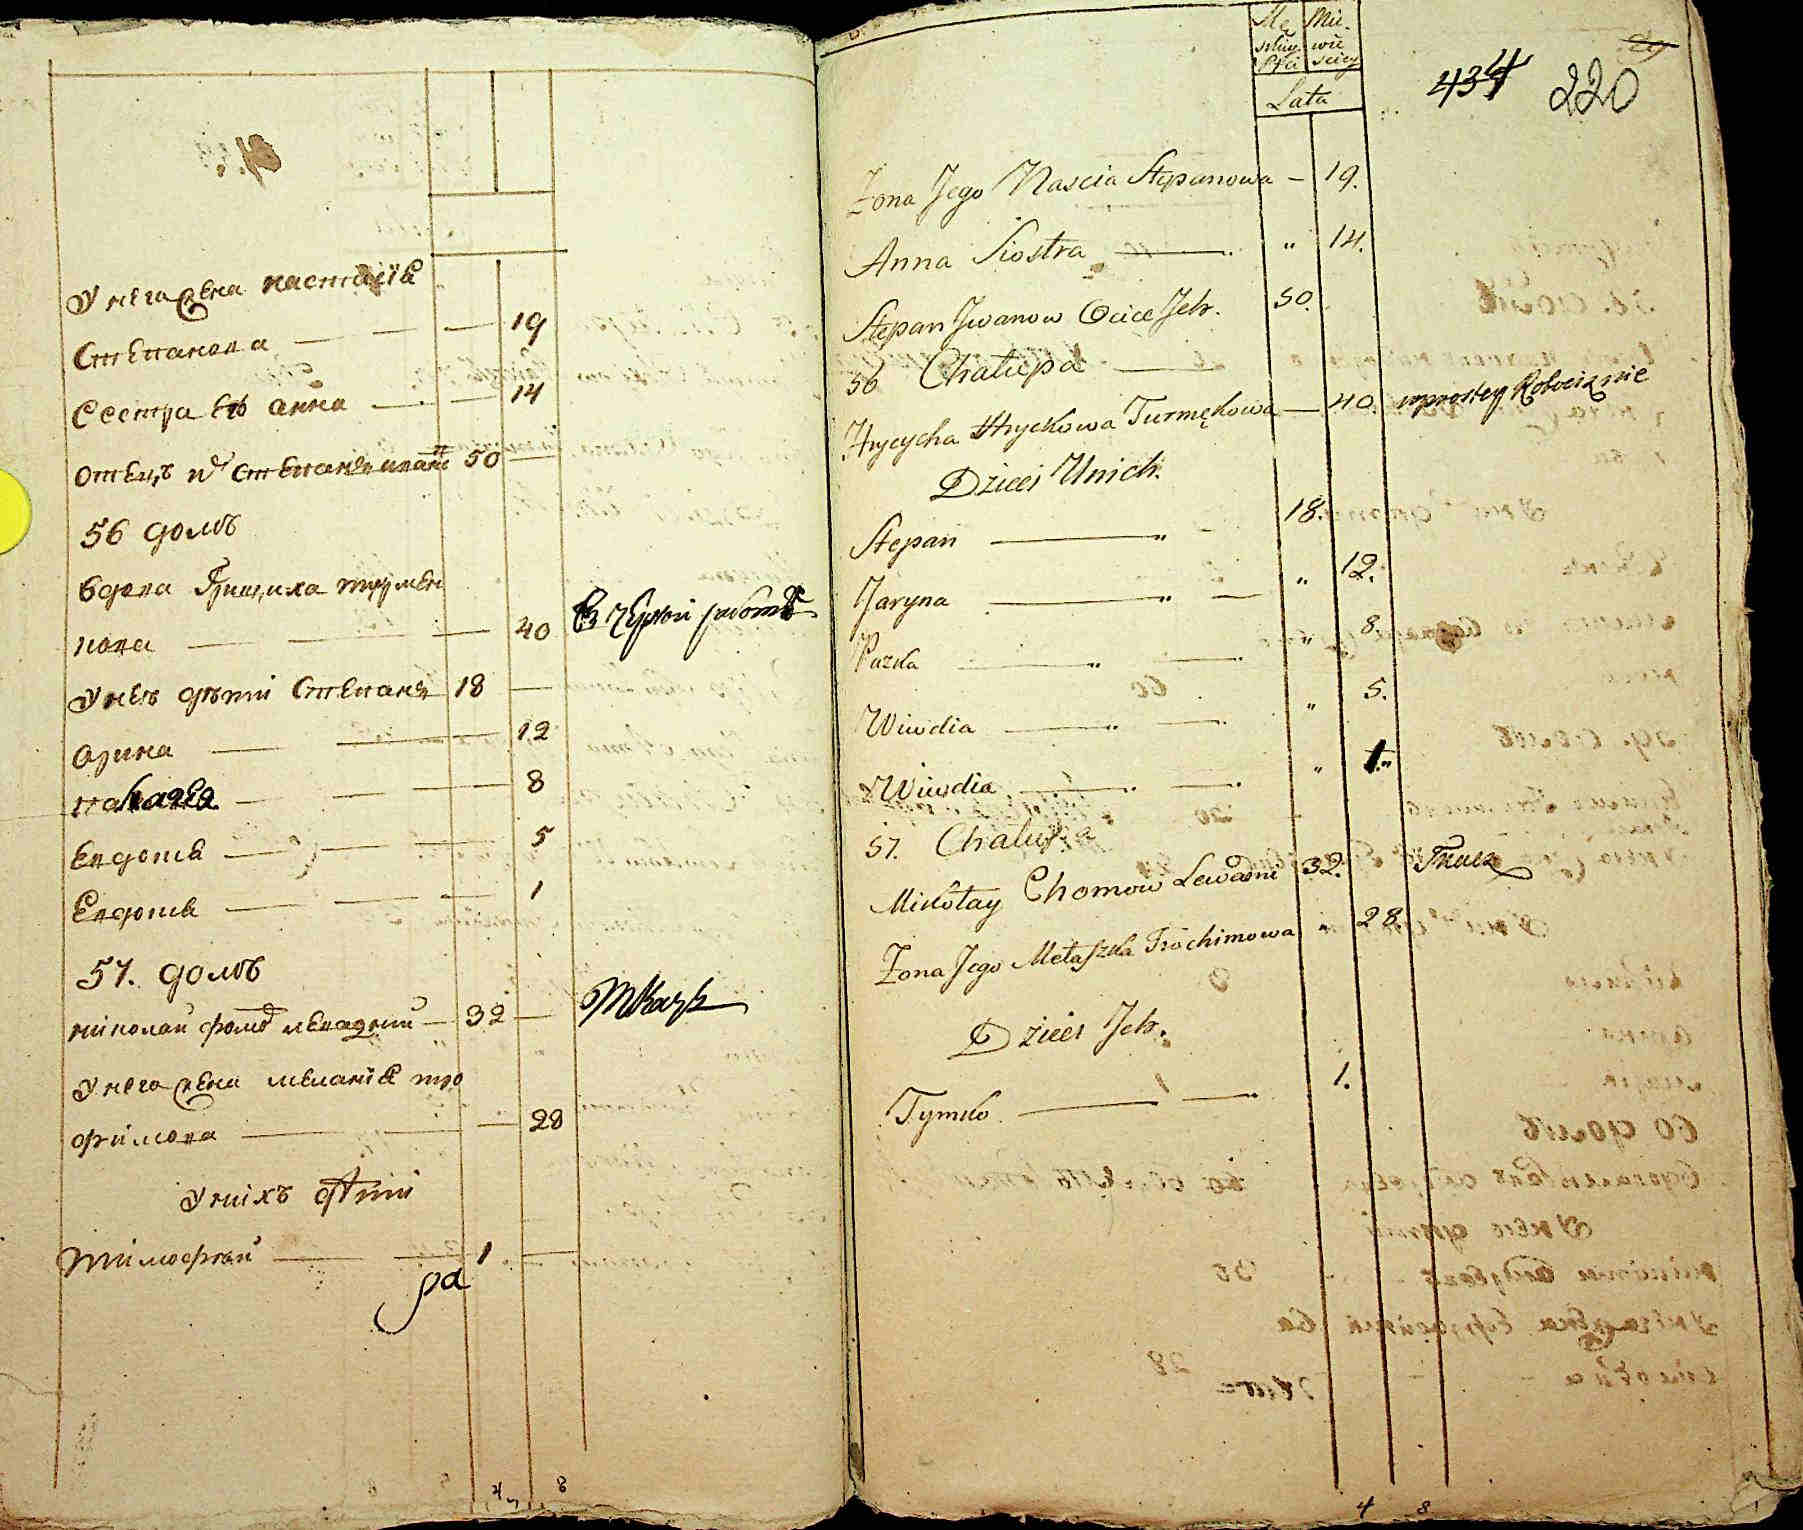 У него жена настасіѣ
Степанова — — — 19
Сестра еѣ анна — — 14
отецъ их Степанъ иванов 50 —
56 домъ
вдова Грициха турмен
кова — — — 40 в чернои работѣ
У неѣ дѣти Степанъ 18 —
орина — — — 12
— — — 8
Евдотѣ — — — 5
Евдотѣ — — — 1
57. домъ
николаи фомов левадний — 32 — Ткачъ
У него жена меланіѣ тро
фимова — — 28
У нихъ дѣти
тимофѣй — — 1 —
ра
4 8
Mę Nie
skiey wie
Płci sciey
Lata
434 220
29
Zona Jego Nascia Stepanowa — 19.
Anna Siostra — „ 14.
Stepan Jwanow Ociec Jch. 50.
56 Chałupa —
Hrycycha Hryckowa Turmękowa — 40. w prostey Robociznie
Dzieci Unich.
Stepan — „ — 18.
Jaryna — „ — „ 12.
Pazka — „ — „ 8.
Wiwdia — „ — „ 5.
Wiwdia — „ — „ 1.„
57. Chałupa
Mikołay Chomow Lewadni 32. Tkacz
Zona Jego Metaszka Trochimowa „ 28
Dzieci Jch.
Tymko — — 1.
4 8